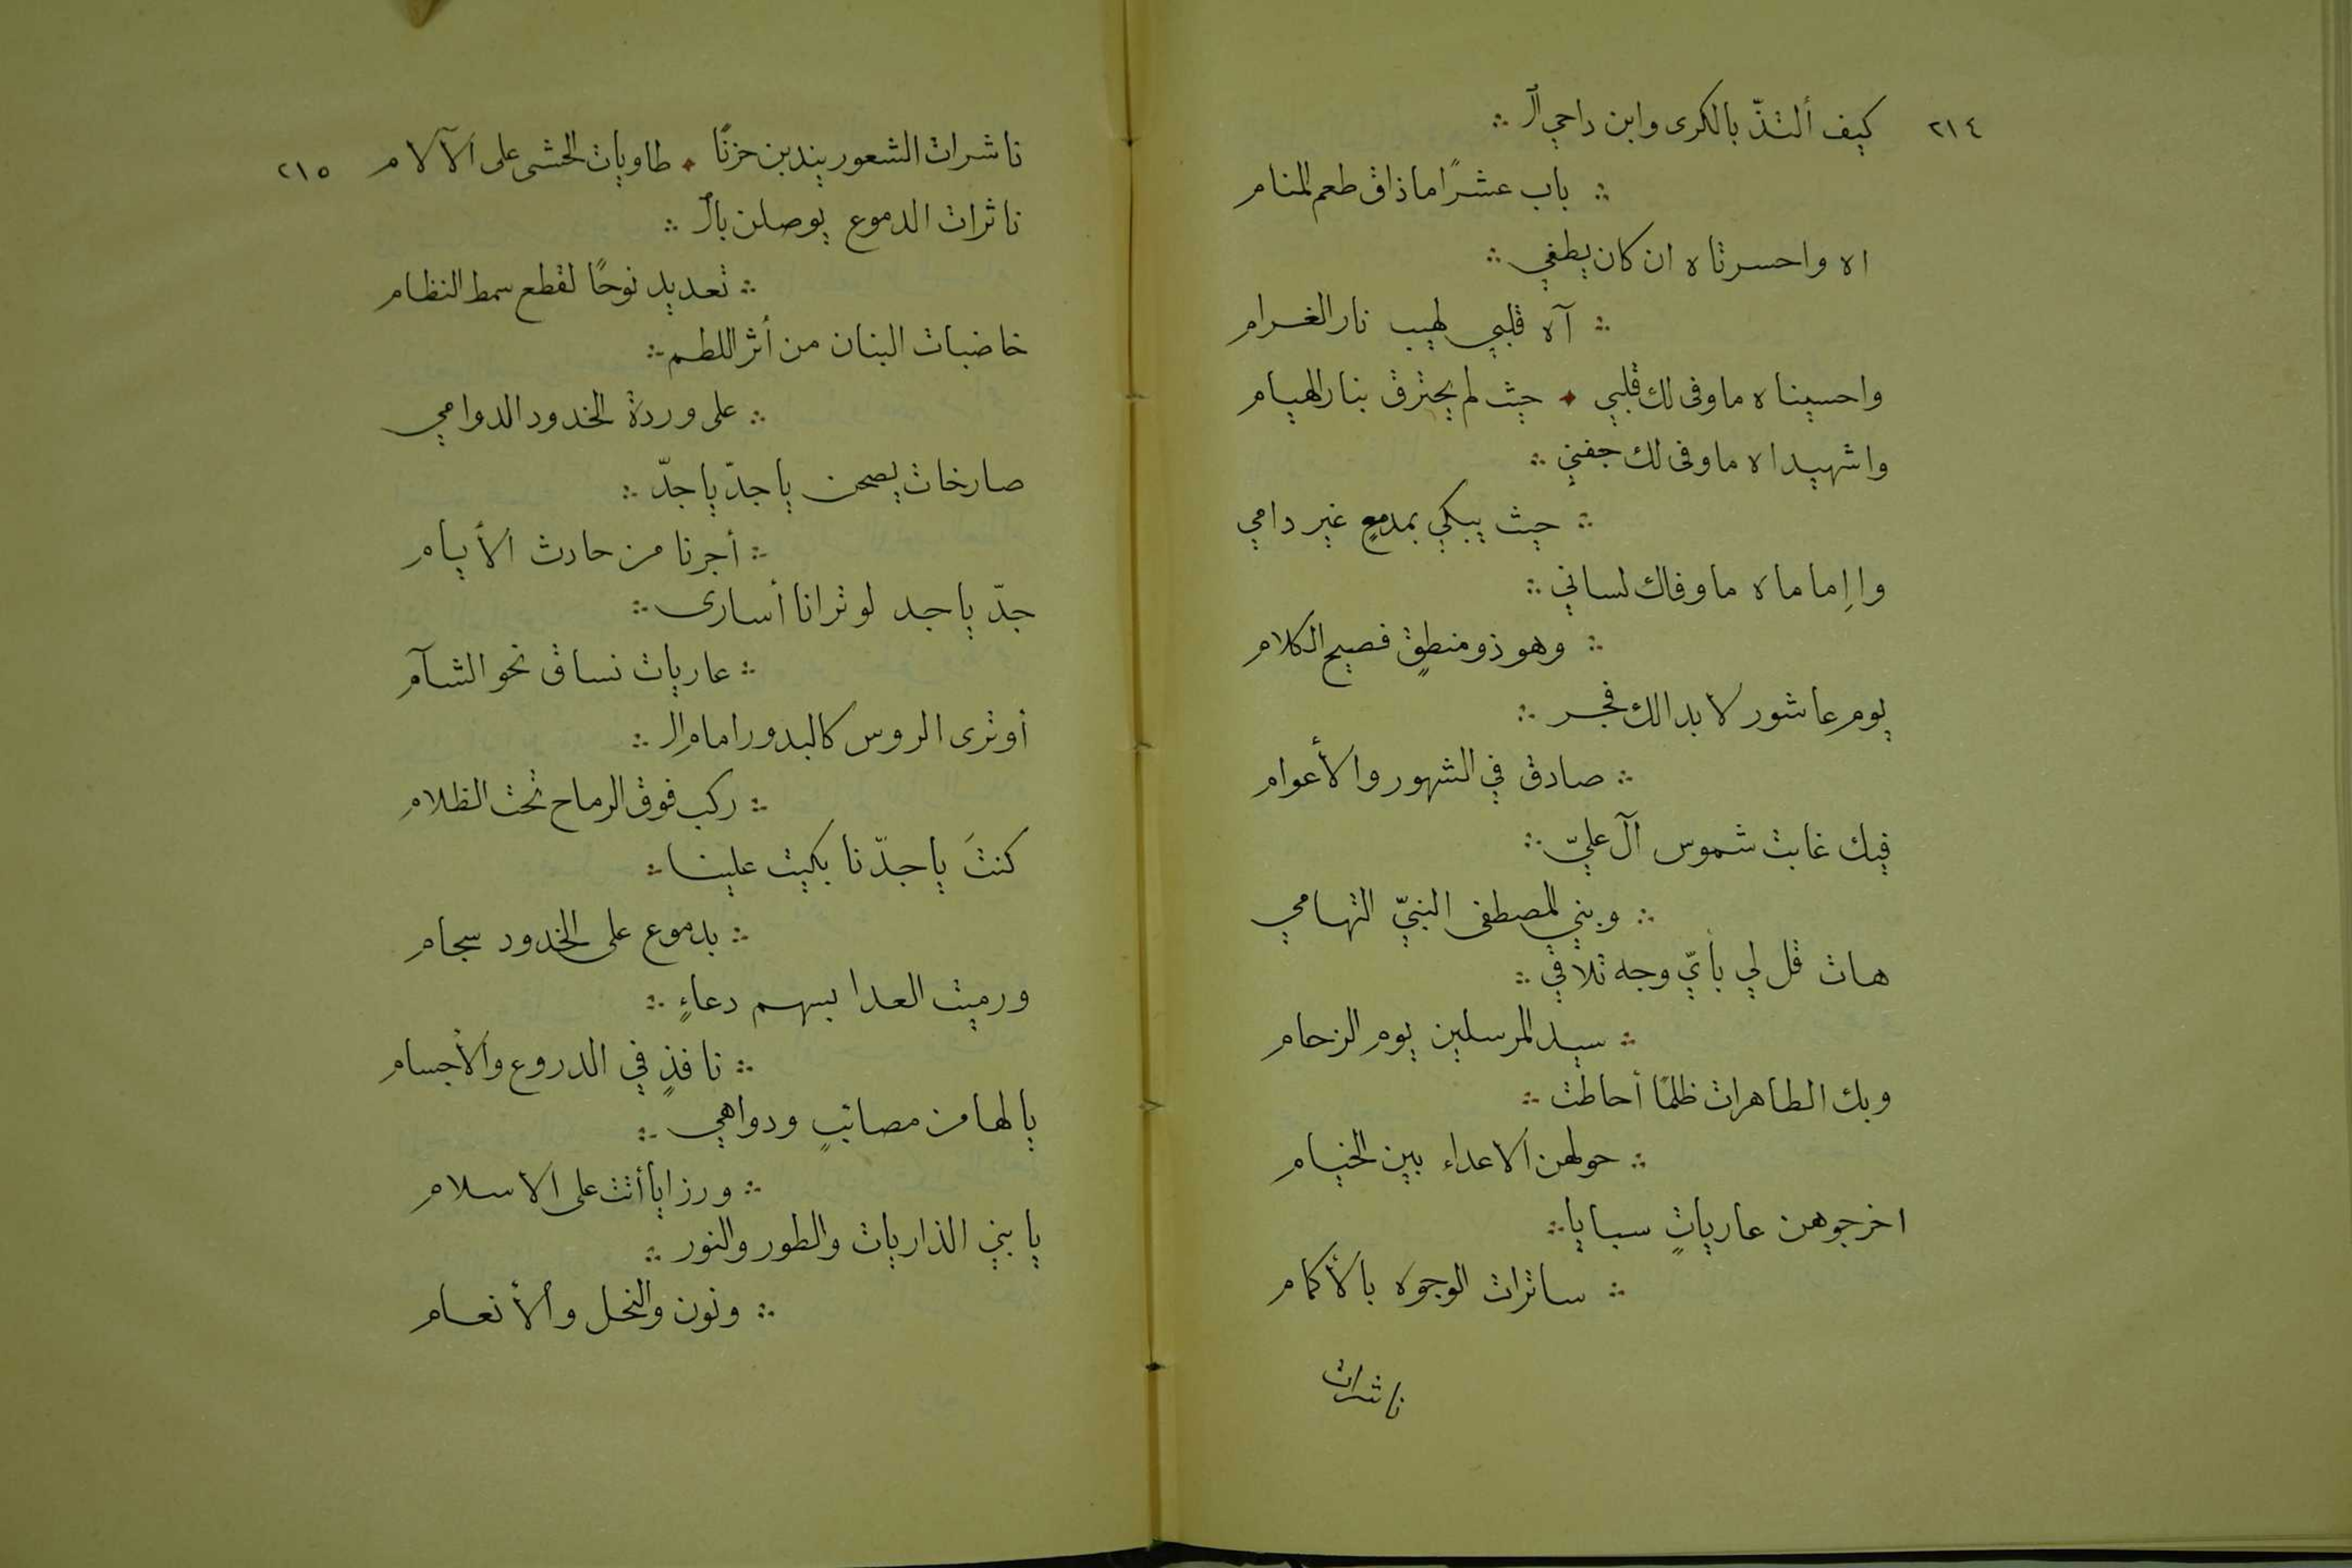 ٢١٤ كيف ألتذّ بالكرى وابن داحي ال ∴
∴ باب عشرًا ما ذاق طعم المنام
اه واحسرتاه ان كان يطفي ∴
∴ آه قلبي لهيب نار الغرام
واحسيناه ما وفى لك قلبي ✦ حيث لم يحترق بنار الهيام
واشهيداه ما وفى لك جفني ∴
∴ حيث يبكي بمدمعٍ غير دامي
واإماماه ما وفاك لساني ∴
∴ وهو ذو منطقٍ فصيح الكلام
يوم عاشور لا بدا لك فجر ∴
∴ صادق في الشهور والأعوام
فيك غابت شموس آل عليّ ∴
∴ وبني المصطفى النبيّ التهامي
هات قل لي بأيّ وجه تلاقي ∴
∴ سيد المرسلين يوم الزحام
وبك الطاهرات ظلمًا أحاطت ∴
∴ حولهن الاعداء بين الخيام
اخرجوهن عارياتٍ سبايا ∴
∴ ساترات الوجوه بالأكمام
ناشرات
ناشرات الشعور يندبن حزنًا ✦ طاويات الحشى على الآلام ٢١٥
ناثرات الدموع يوصلن بال ∴
∴ تعديد نوحًا لقطع سمط النظام
خاضبات البنان من أثر اللطم ∴
∴ على وردة الخدود الدوامي
صارخات يصحن يا جدّ يا جدّ ∴
∴ أجرنا من حادث الأيام
جدّ يا جد لو ترانا أسارى ∴
∴ عاريات نساق نحو الشآم
أو ترى الروس كالبدور امام ال ∴
∴ ركب فوق الرماح تحت الظلام
كنتَ يا جدّنا بكيت علينا ∴
∴ بدموع على الخدود سجام
ورميت العدا بسهم دعاءٍ ∴
∴ نافذٍ في الدروع والأجسام
يا لها من مصائبٍ ودواهي ∴
∴ ورزايا أتت على الاسلام
يا بني الذاريات والطور والنور ∴
∴ ونون والنحل والأنعام